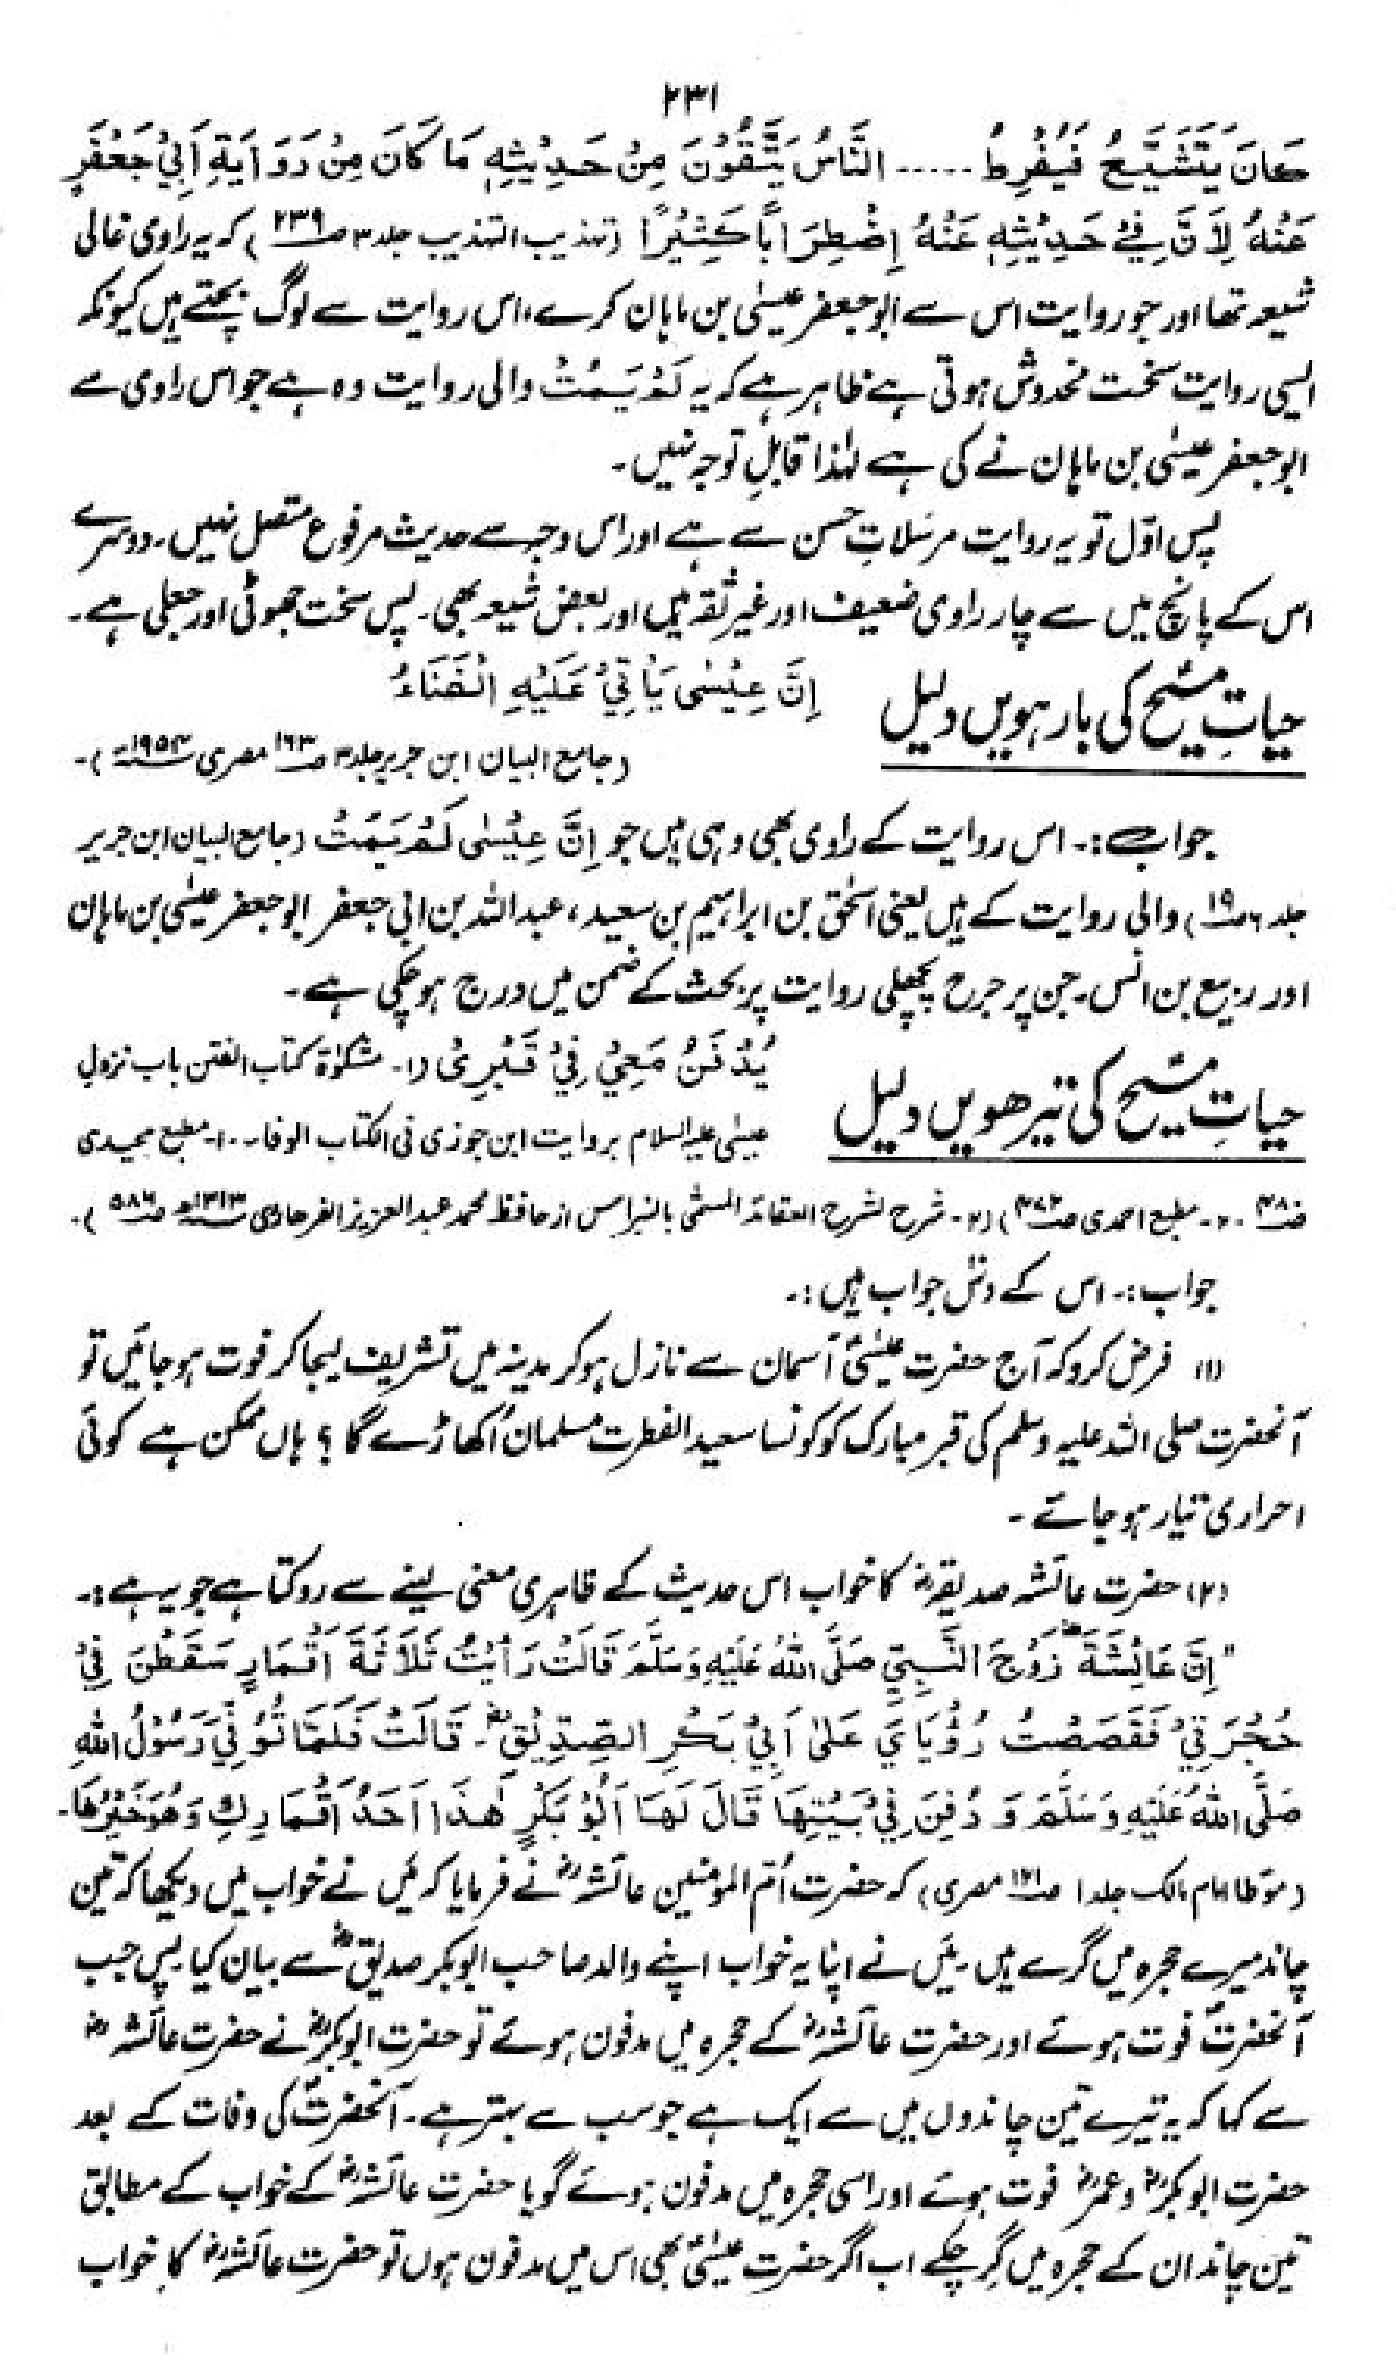 ۲۳۱
كَانَ يَتَشَيَّعُ فَيُفْرِطُ ..... النَّاسُ يَتَّقُوْنَ مِنْ حَدِيْثِهٖ مَا كَانَ مِنْ رَوَايَةِ اَبِيْ جَعْفَرٍ
عَنْهُ لِاَنَّ فِيْ حَدِيْثِهٖ عَنْهُ اِضْطِرَابًا كَثِيْرًا (تہذیب التہذیب جلد ۳ ص۲۳۹) کہ یہ راوی غالی
شیعہ تھا اور جو روایت اس سے ابوجعفر عیسٰی بن ماہان کرے، اس روایت سے لوگ بچتے ہیں کیونکہ
ایسی روایت سخت مخدوش ہوتی ہے ظاہر ہے کہ یہ لَمْ يَمُتْ والی روایت وہ ہے جو اس راوی سے
ابوجعفر عیسٰی بن ماہان نے کی ہے لہٰذا قابلِ توجہ نہیں۔
پس اوّل تو یہ روایت مرسلاتِ حسن سے ہے اور اس وجہ سے حدیث مرفوع متصل نہیں۔ دوسرے
اس کے پانچ میں سے چار راوی ضعیف اور غیر ثقہ ہیں اور بعض شیعہ بھی۔ پس سخت جھوٹی اور جعلی ہے۔
حیاتِ مسیحؑ کی بارہویں دلیل
اِنَّ عِيْسٰى يَاْتِيْ عَلَيْهِ الْفَنَاءُ
(جامع البیان ابن جریر جلد ۳ ص۱۶۳ مصری ۱۹۵۴ء)۔
جواب:۔ اس روایت کے راوی بھی وہی ہیں جو اِنَّ عِيْسٰى لَمْ يَمُتْ (جامع البیان ابن جریر
جلد ۶ ص۱۹) والی روایت کے ہیں یعنی اسحٰق بن ابراہیم بن سعید، عبداللہ بن ابی جعفر ابوجعفر عیسٰی بن ماہان
اور ربیع بن انس۔ جن پر جرح پچھلی روایت پر بحث کے ضمن میں درج ہو چکی ہے۔
حیاتِ مسیحؑ کی تیرھویں دلیل
يُدْفَنُ مَعِيْ فِيْ قَبْرِيْ (۱۔ مشکوٰۃ کتاب الفتن باب نزولِ
عیسٰی علیہ السلام بروایت ابن جوزی فی الکتاب الوفا۔ ۱۔ مطبع مجیدی
ص۴۸۰ ۲۔ مطبع احمدی ص۴۷۲) (۲۔ شرح لشرح العقائد المسمّٰی بالنبراس از حافظ محمد عبدالعزیز الفرہاوی ۱۳۱۳ھ ص۵۸۶)۔
جواب:۔ اس کے دس جواب ہیں:۔
(۱) فرض کرو کہ آج حضرت عیسٰیؑ آسمان سے نازل ہو کر مدینہ میں تشریف لیجا کر فوت ہو جائیں تو
آنحضرت صلی اللہ علیہ وسلم کی قبر مبارک کو کونسا سعید الفطرت مسلمان اُکھاڑے گا؟ ہاں ممکن ہے کوئی
احراری تیار ہو جائے۔
(۲) حضرت عائشہ صدیقہؓ کا خواب اس حدیث کے ظاہری معنی لینے سے روکتا ہے جو یہ ہے:۔
"اِنَّ عَائِشَةَؓ زَوْجَ النَّبِيِّ صَلَّى اللهُ عَلَيْهِ وَسَلَّمَ قَالَتْ رَأَيْتُ ثَلَاثَةَ اَقْمَارٍ سَقَطْنَ فِيْ
حُجْرَتِيْ فَقَصَصْتُ رُؤْيَايَ عَلٰى اَبِيْ بَكْرِ الصِّدِّيْقِؓ۔ قَالَتْ فَلَمَّا تُوُفِّيَ رَسُوْلُ اللهِ
صَلَّى اللهُ عَلَيْهِ وَسَلَّمَ وَ دُفِنَ فِيْ بَيْتِهَا قَالَ لَهَا اَبُوْ بَكْرٍ هٰذَا اَحَدُ اَقْمَارِكِ وَهُوَ خَيْرُهَا۔
(مؤطا امام مالک جلد ۱ ص۱۲۱ مصری) کہ حضرت اُمّ المومنین عائشہؓ نے فرمایا کہ مَیں نے خواب میں دیکھا کہ تین
چاند میرے حجرہ میں گرے ہیں۔ مَیں نے اپنا یہ خواب اپنے والد صاحب ابوبکر صدیقؓ سے بیان کیا۔ پس جب
آنحضرتؐ فوت ہوئے اور حضرت عائشہؓ کے حجرہ میں مدفون ہوئے تو حضرت ابوبکرؓ نے حضرت عائشہؓ
سے کہا کہ یہ تیرے تین چاندوں میں سے ایک ہے جو سب سے بہتر ہے۔ آنحضرتؐ کی وفات کے بعد
حضرت ابوبکرؓ و عمرؓ فوت ہوئے اور اسی حجرہ میں مدفون ہوئے گویا حضرت عائشہؓ کے خواب کے مطابق
تین چاند ان کے حجرہ میں گِر چکے اب اگر حضرت عیسٰیؑ بھی اس میں مدفون ہوں تو حضرت عائشہؓ کا خواب